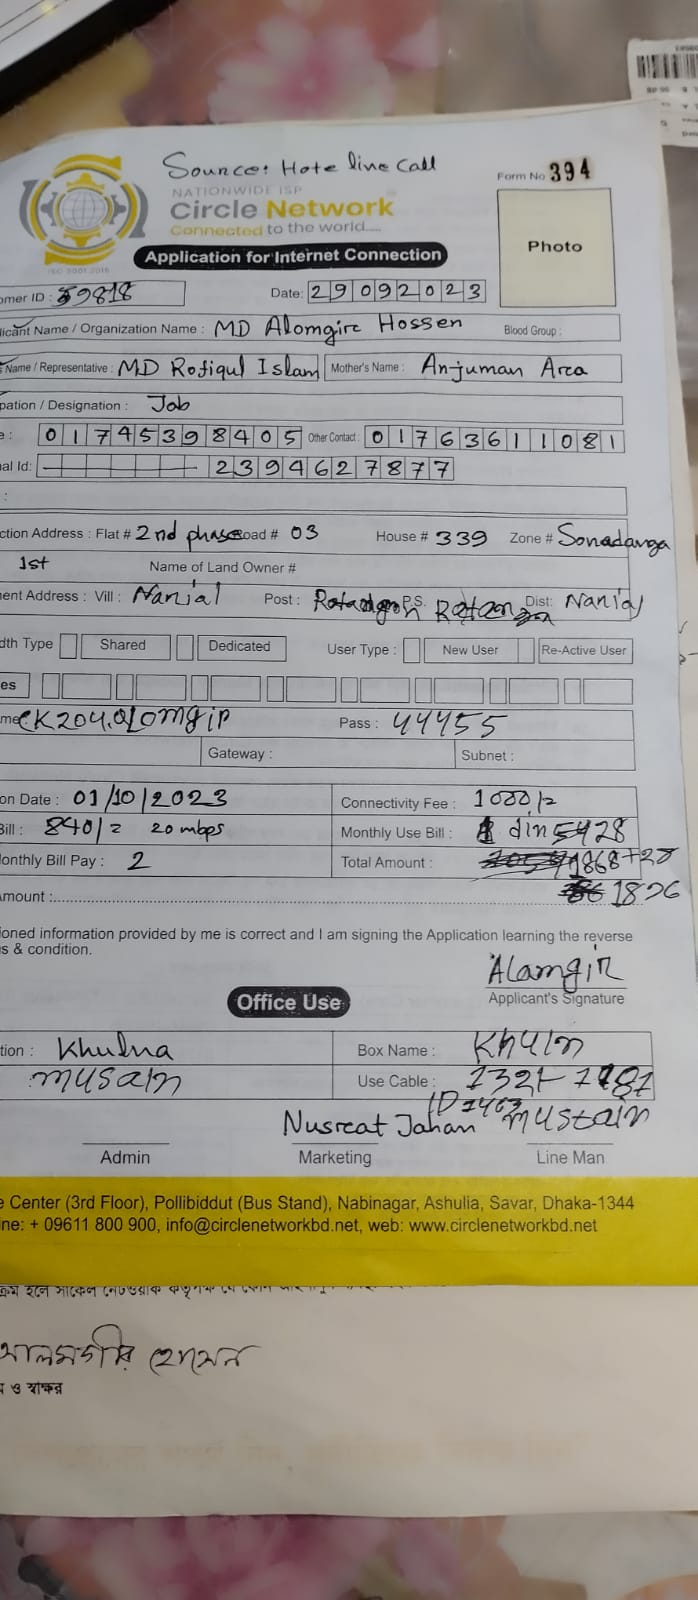 Source: Hote line call
NATIONWIDE ISP
Form No 394
Circle Network
Connected to the world.....
Photo
Application for Internet Connection
ISO 9001:2015
omer ID : 59818 Date: 29092023
licant Name / Organization Name : MD Alomgire Hossen Blood Group :
s Name / Representative : MD Rofiqul Islam Mother's Name : Anjuman Area
pation / Designation : Job
e : 01745398405 Other Contact : 01763611081
al Id: 2394627877
:
ction Address : Flat # 2nd phase Road # 03 House # 339 Zone # Sonadanga
1st Name of Land Owner #
nent Address : Vill : Narial Post : P.S. Dist: Narial
dth Type Shared Dedicated User Type : New User Re-Active User
es
me CK204.alomgir Pass : 44455
Gateway : Subnet :
on Date : 01/10/2023 Connectivity Fee : 1000/=
Bill : 840/= 20 mbps Monthly Use Bill : din 5428
onthly Bill Pay : 2 Total Amount : 1868+28
Amount :
ioned information provided by me is correct and I am signing the Application learning the reverse
s & condition.
Alamgir
Applicant's Signature
Office Use
tion : Khulna Box Name : Khuln
Use Cable :
Nusreat Jahan
Admin Marketing Line Man
e Center (3rd Floor), Pollibiddut (Bus Stand), Nabinagar, Ashulia, Savar, Dhaka-1344
ine: + 09611 800 900, info@circlenetworkbd.net, web: www.circlenetworkbd.net
আলমগীর হোসেন
ও স্বাক্ষর